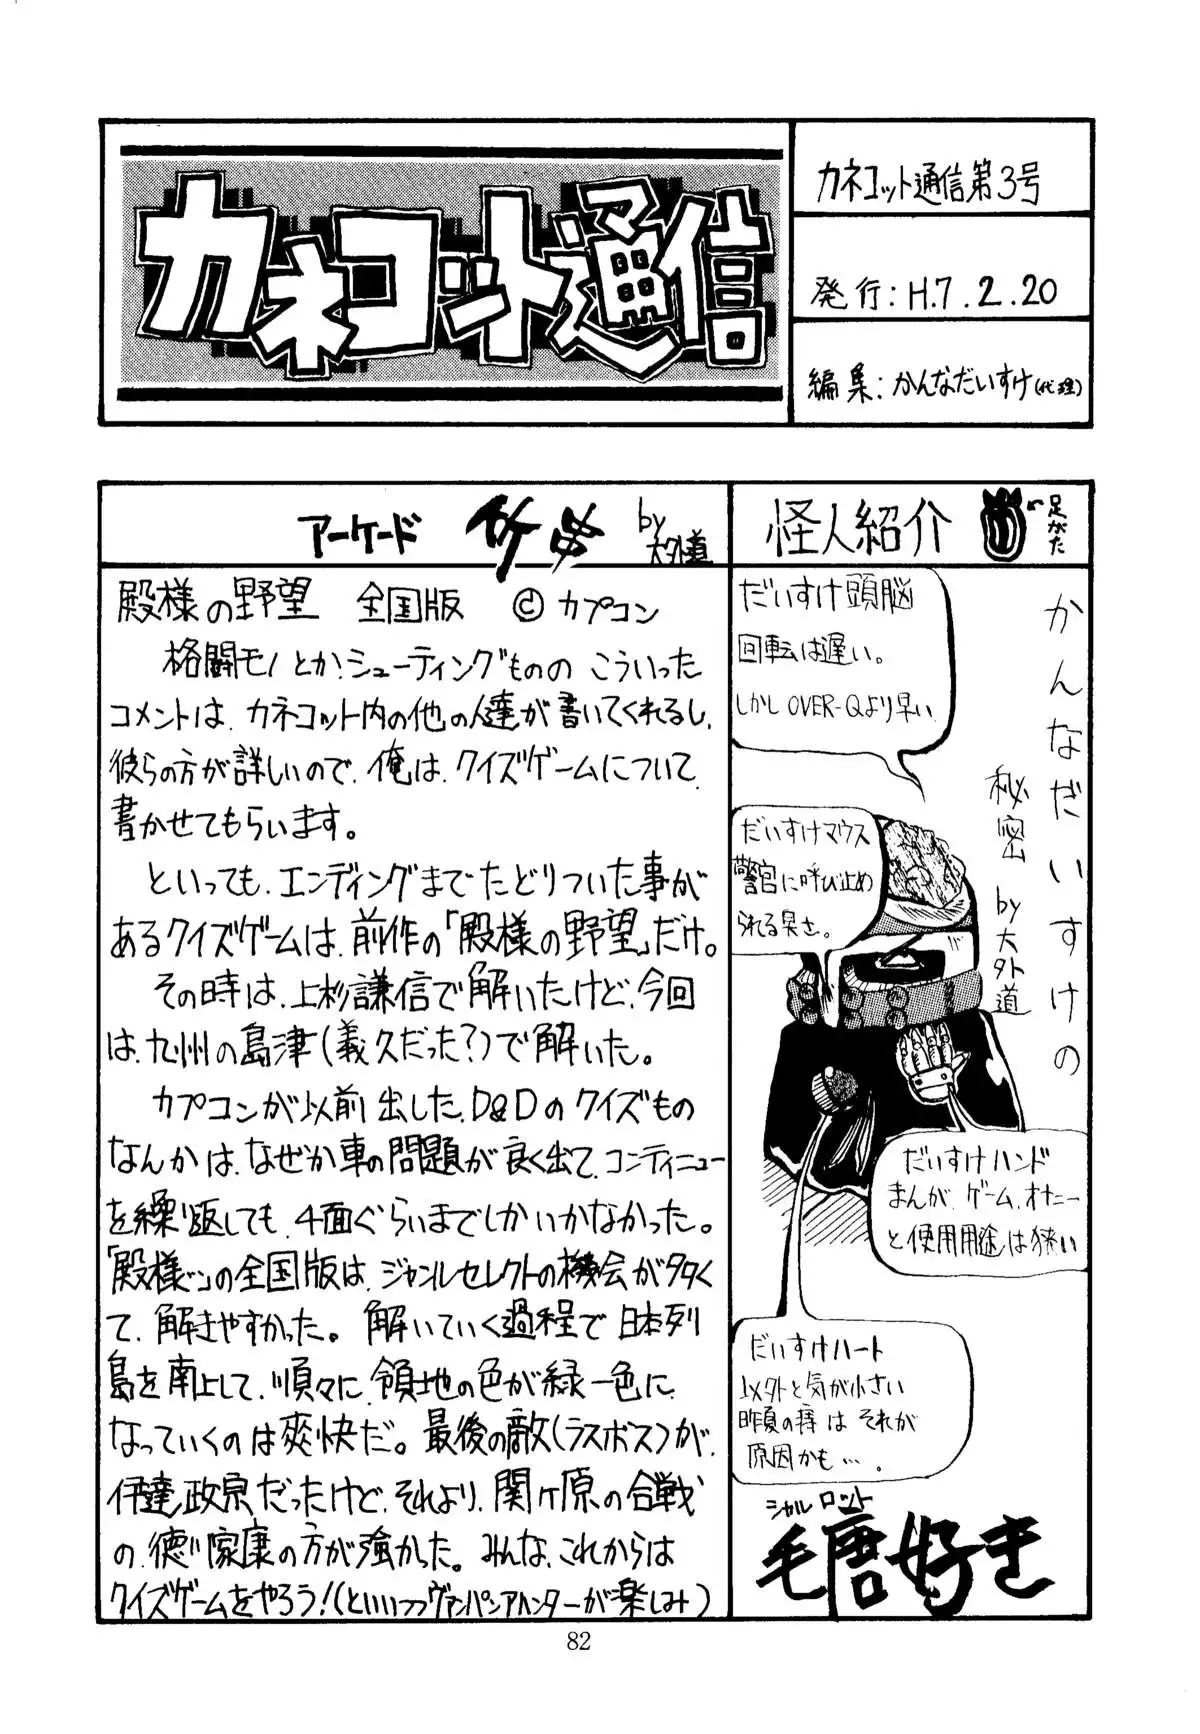 カネコット通信
カネコット通信第3号
発行：H.7.2.20
編集：かんなだいすけ(代理)
アーケード 竹串 by大外道
殿様の野望 全国版 ©カプコン
格闘モノとか、シューティングものの こういった
コメントは、カネコット内の他の人達が書いてくれるし、
彼らの方が詳しいので、俺は、クイズゲームについて
書かせてもらいます。
といっても、エンディングまでたどりついた事が
あるクイズゲームは、前作の「殿様の野望」だけ。
その時は、上杉謙信で解いたけど、今回
は、九州の島津(義久だった?)で解いた。
カプコンが以前出した、D&Dのクイズもの
なんかは、なぜか車の問題が良く出て、コンティニュー
を繰り返しても、4面ぐらいまでしかいかなかった。
「殿様〜」の全国版は、ジャンルセレクトの機会が多く
て、解きやすかった。解いていく過程で日本列
島を南上して、順々に、領地の色が緑一色に
なっていくのは爽快だ。最後の敵(ラスボス)が、
伊達政宗、だったけど、それより、関ヶ原の合戦
の、徳川家康の方が強かった。みんな、これからは
クイズゲームをやろう!(といいつつヴァンパイアハンターが楽しみ)
怪人紹介
足がた
かんなだいすけの
秘密 by大外道
だいすけ頭脳
回転は遅い。
しかしOVER-Qより早い
だいすけマウス
警官に呼び止め
られる臭さ。
だいすけハンド
まんが、ゲーム、オナニー
と使用用途は狭い
だいすけハート
以外と気が小さい
昨夏の痔は それが
原因かも…。
シャルロット
毛唐好き
82